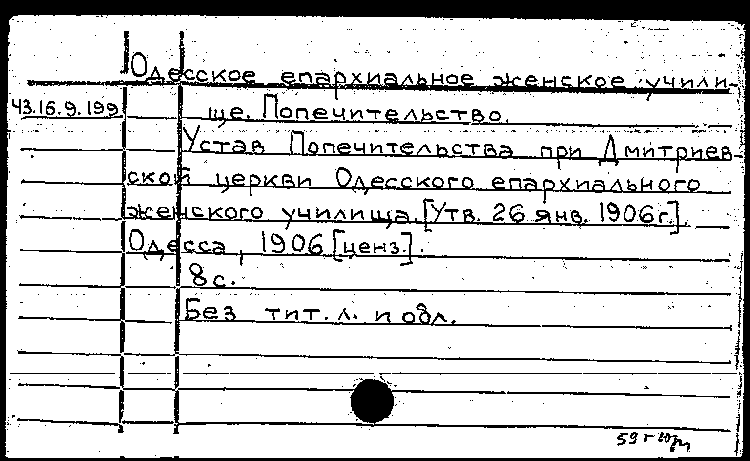 Одесское епархиальное женское учили-
43.16.9.199 ще. Попечительство.
Устав Попечительства при Дмитриев-
ской церкви Одесского епархиального
женского училища. [Утв. 26 янв. 1906 г.].
Одесса, 1906 [ценз.].
8 с.
Без тит. л. и обл.
59 г